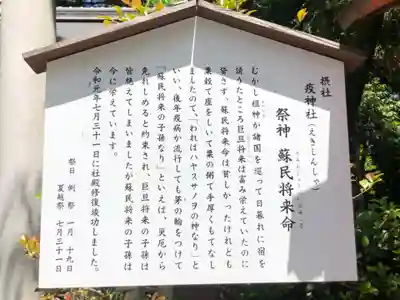 摂社
疫神社(えきじんしゃ)
祭神 蘇民将来命
むかし祖神が諸国を巡って日暮れに宿を
請うたところ巨旦将来は富み栄えていたのに
貸さず、蘇民将来命は貧しかったけれども
粟殻で座をしいて粟の粥で手厚くもてなし
ましたので、「われはハヤスサノヲの神なり」と
いい、後年疫病が流行しても茅の輪をつけて
「蘇民将来の子孫なり」といえば、災厄から
免れしめると約束され、巨旦将来の子孫は
皆絶えてしまいましたが蘇民将来の子孫は
今に栄えています。
令和元年七月三十一日に社殿修復竣功しました。
祭日 例祭 一月 十九日
夏越祭 七月三十一日